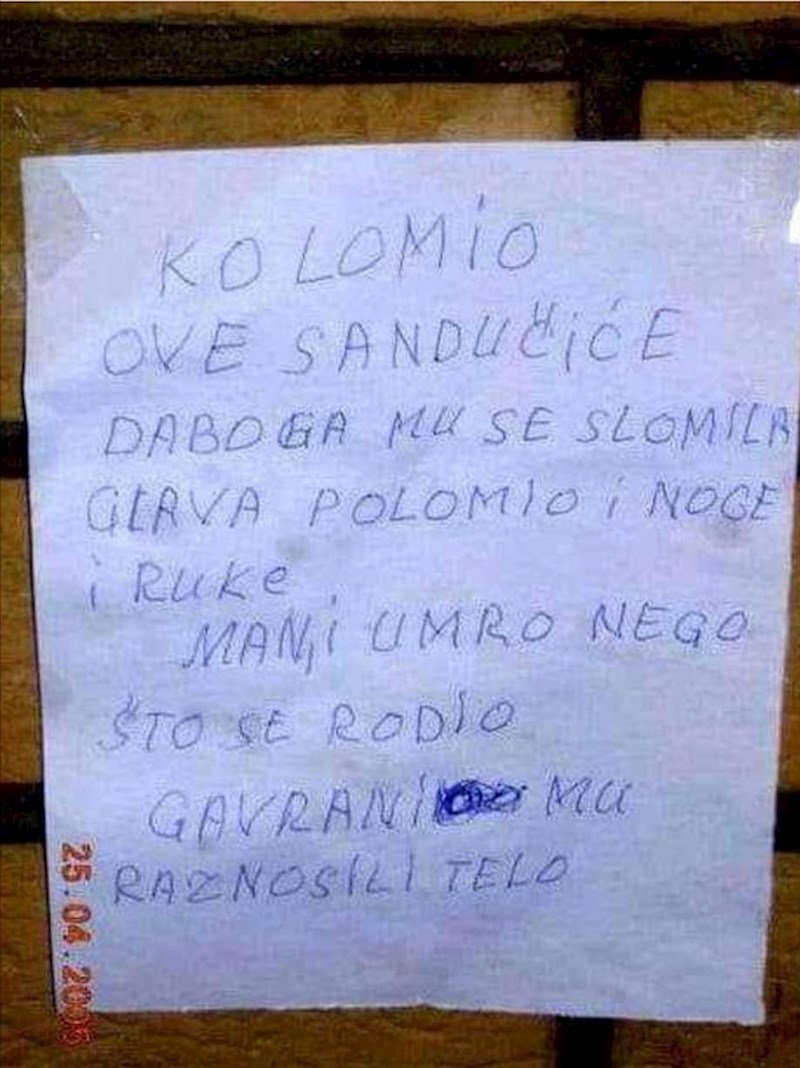 KO LOMiO
OVE SANDUČiĆE
DABOGA MU SE SLOMILA
GLAVA POLOMIO i NOGE
i RUKe
MANJi UMRO NEGO
ŠTO SE RODIO
GAVRANI MU
RAZNOSILI TELO
25.04.2005